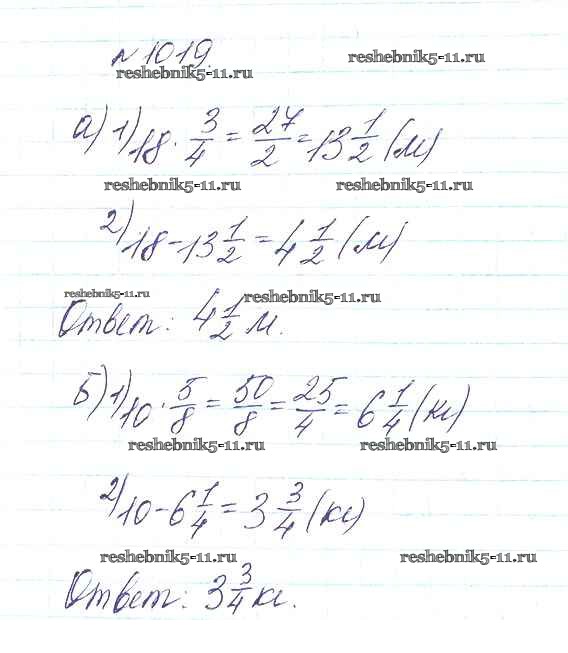 №1019.
reshebnik5-11.ru
reshebnik5-11.ru
а) 1) 18 · 3/4 = 27/2 = 13 1/2 (м)
reshebnik5-11.ru reshebnik5-11.ru
2) 18 - 13 1/2 = 4 1/2 (м)
reshebnik5-11.ru reshebnik5-11.ru
Ответ: 4 1/2 м.
б) 1) 10 · 5/8 = 50/8 = 25/4 = 6 1/4 (кг)
reshebnik5-11.ru reshebnik5-11.ru
2) 10 - 6 1/4 = 3 3/4 (кг)
reshebnik5-11.ru reshebnik5-11.ru
Ответ: 3 3/4 кг.